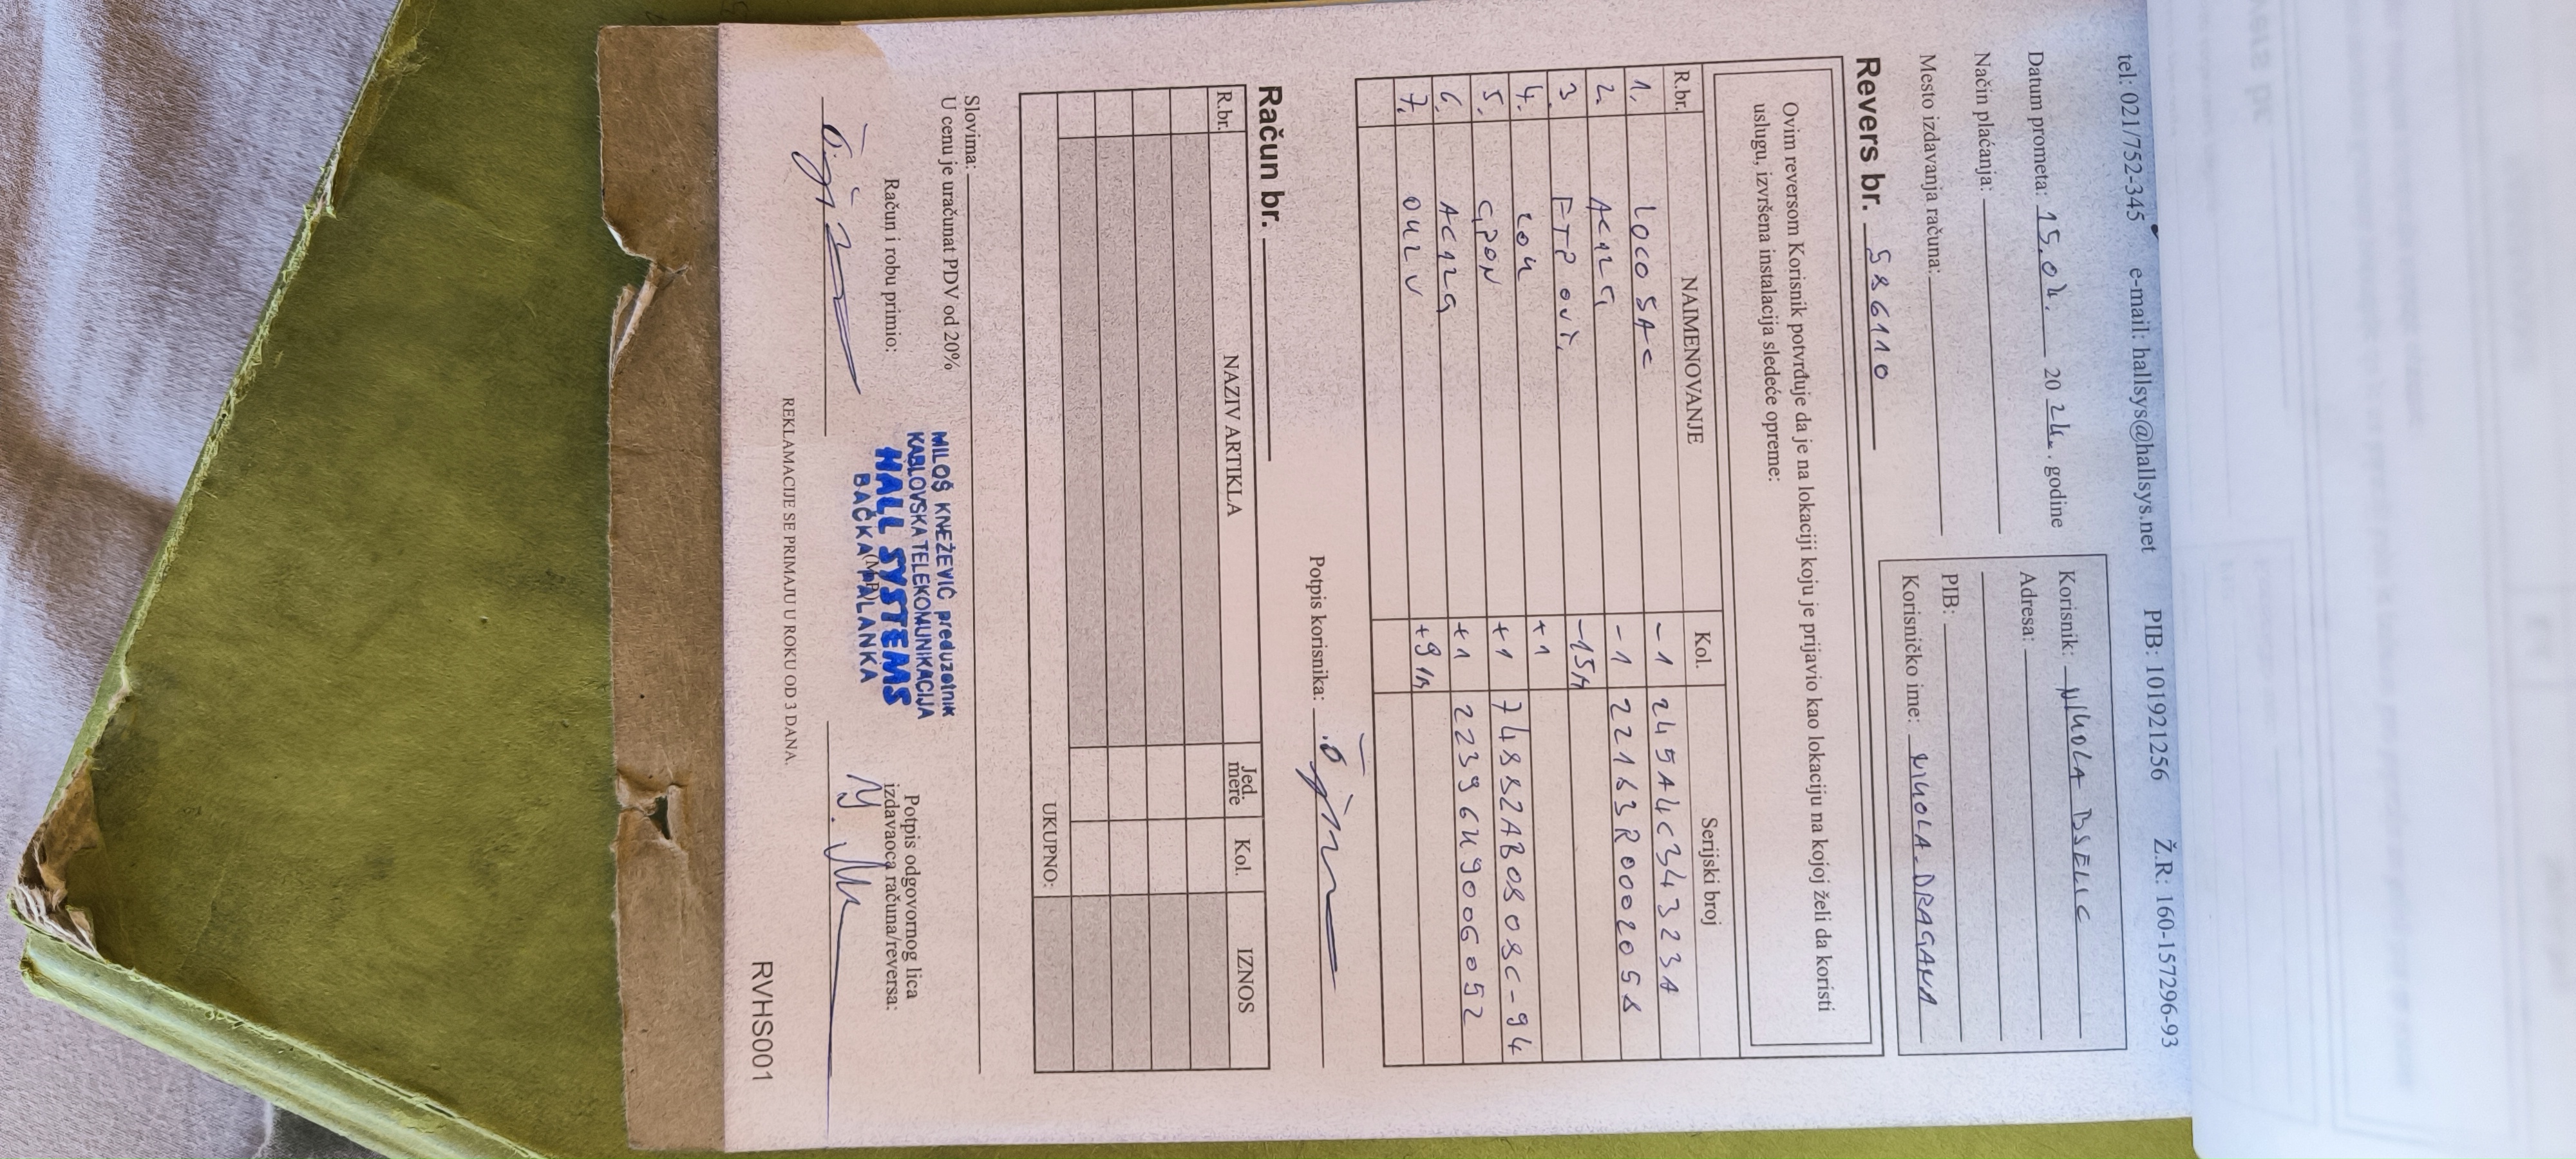 tel: 021/752-345 e-mail: hallsys@hallsys.net PIB: 101921256 Ž.R: 160-157296-93
Datum prometa: 15.04. 20 24. godine
Način plaćanja:
Mesto izdavanja računa:
Korisnik: NIKOLA
Adresa:
PIB:
Korisničko ime: NIKOLA_DRAGANA
Revers br. 586110
Ovim reversom Korisnik potvrđuje da je na lokaciji koju je prijavio kao lokaciju na kojoj želi da koristi
uslugu, izvršena instalacija sledeće opreme:
R.br. NAIMENOVANJE Kol. Serijski broj
1. LOCO 5AC -1 245A4C34323A
2. AC12G -1 22163R0002058
3. FTP -15M
4. +1
5. GPON +1 74882AB0808C-94
6. AC12G +1 22396U9006052
7. +9M
Potpis korisnika:
Račun br.
R.br. NAZIV ARTIKLA Jed. mere Kol. IZNOS
UKUPNO:
Slovima:
U cenu je uračunat PDV od 20%
Račun i robu primio:
MILOŠ KNEŽEVIĆ preduzetnik
KABLOVSKA TELEKOMUNIKACIJA
HALL SYSTEMS
BAČKA PALANKA
(M.P.)
Potpis odgovornog lica
izdavaoca računa/reversa:
REKLAMACIJE SE PRIMAJU U ROKU OD 3 DANA.
RVHS001